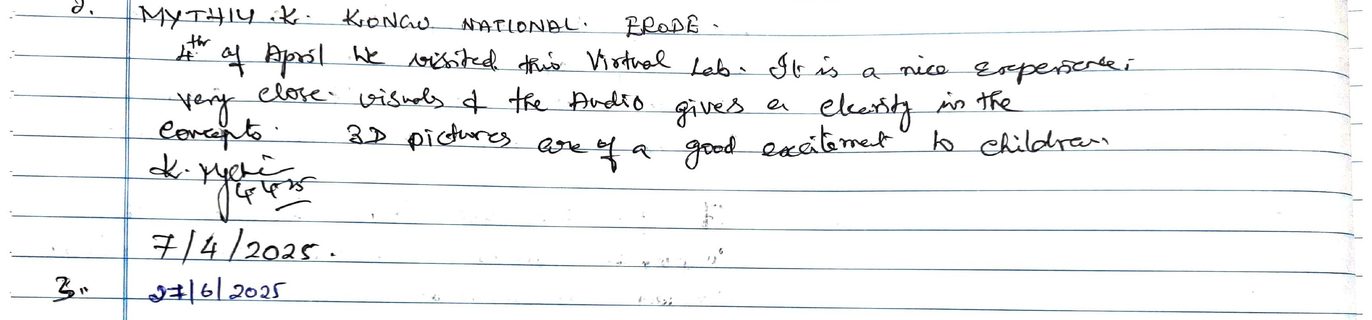 2. MYTHILI .K. KONGU NATIONAL. ERODE.
4th of April we visited this Virtual Lab. It is a nice experience.
very close. visuals & the Audio gives a clearity in the
concepts. 3D pictures are of a good excitement to children
K. 4 4 25
7/4/2025.
3. 27/6/2025